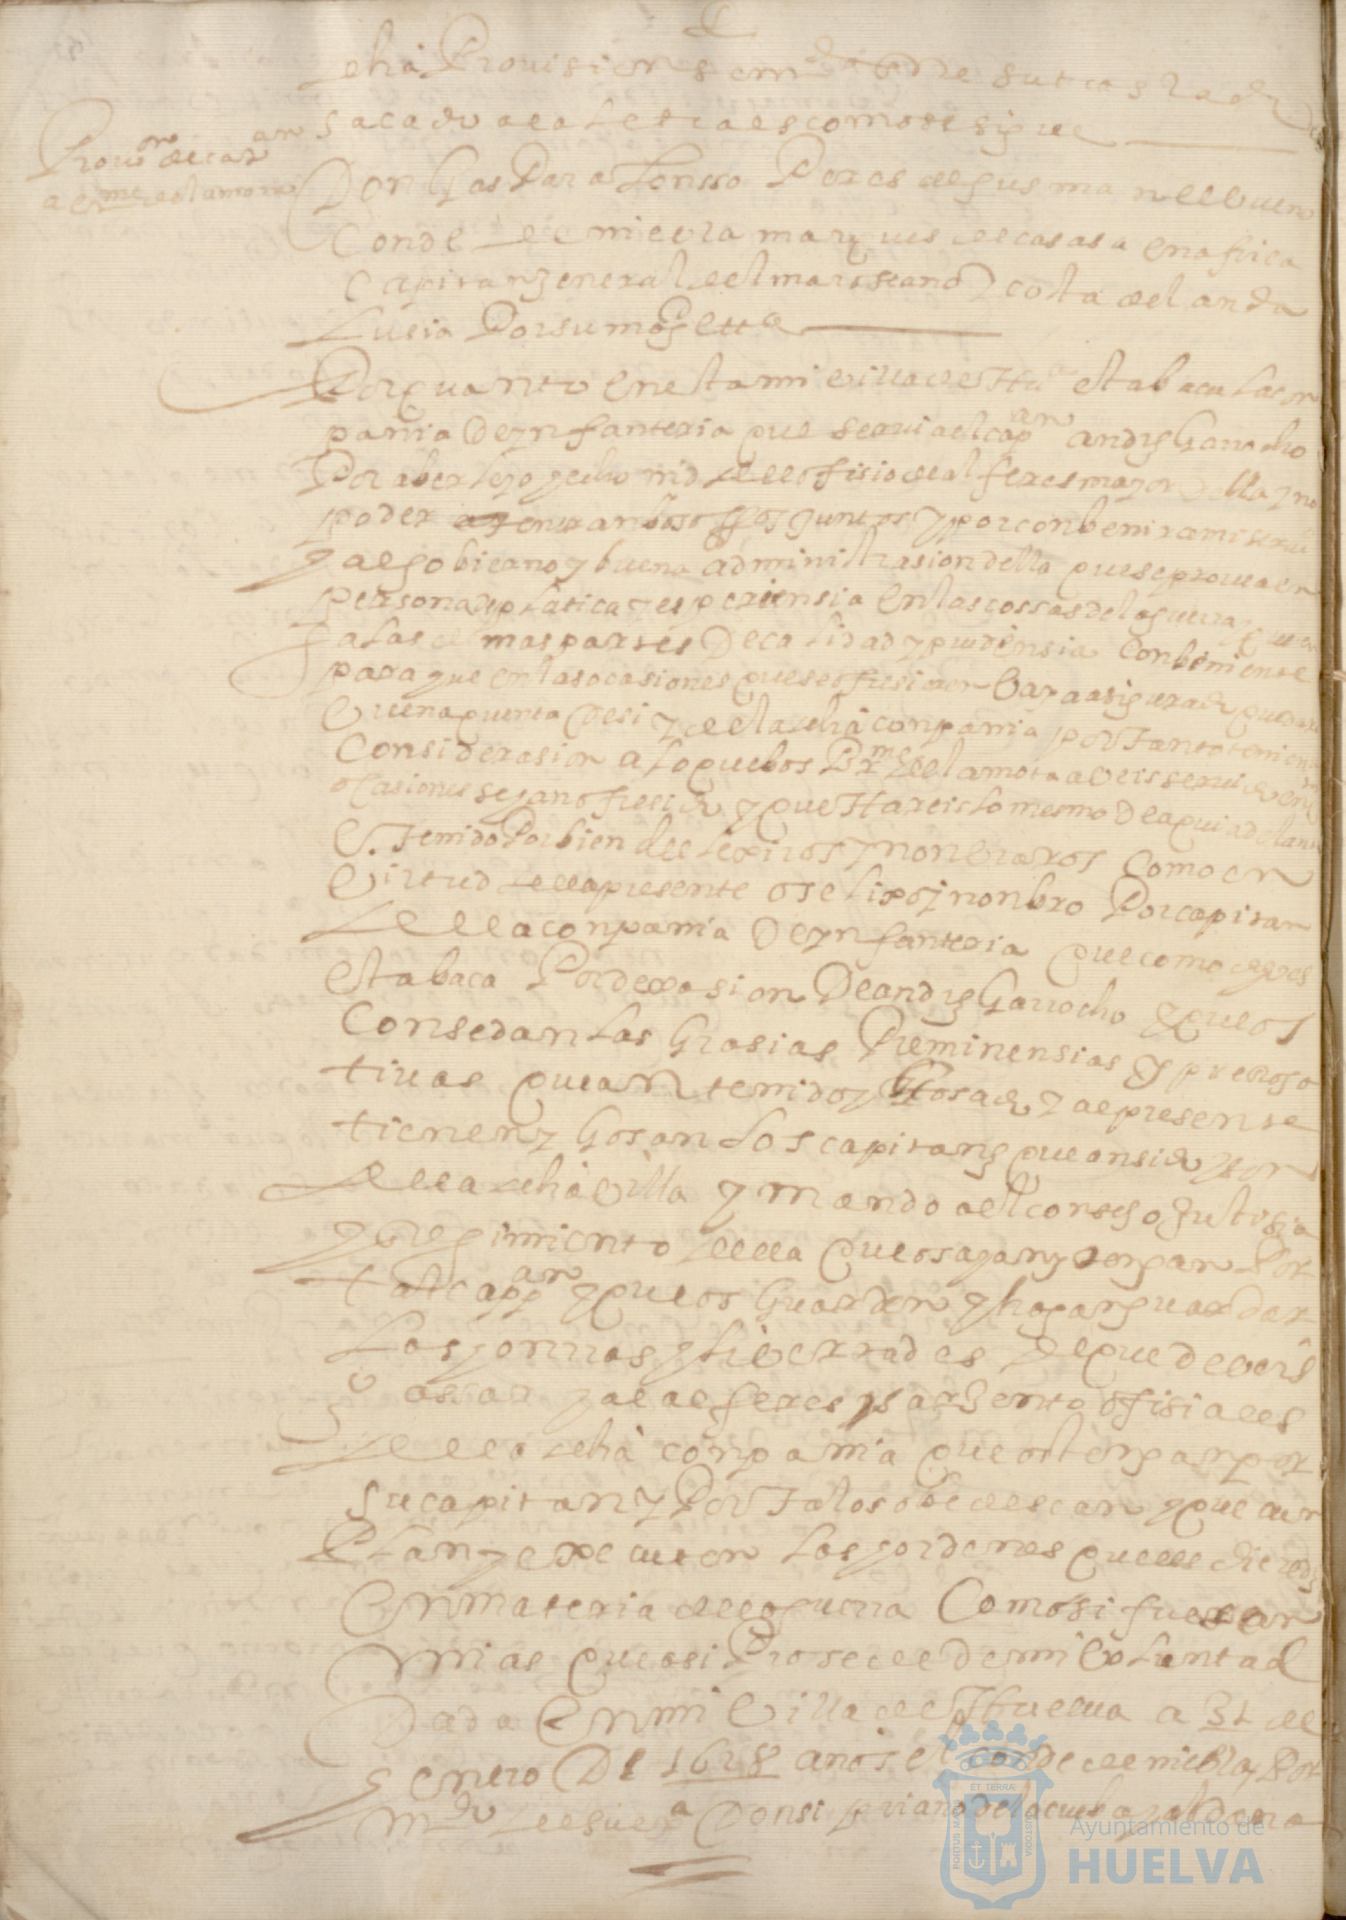 dha Provision con md de su traslado
sacado a la letra es como se sigue
Provon de capan
a Brme de la mota
Don Gaspar alonsso Peres de gusman el bueno
Conde de niebla marques de casasa en africa
Capitan general del mar oseano y costa del anda
lusia Por su magd ettª
Por quanto en esta mi villa de Huª estabaca la con
pania de ynfanteria que serui a el capan andrs Garrocho
Por aberle yo hecho md del ofisio de alferes mayor della y no
poder entranbos offos juntos y por conbenir a mi serui
y al gobierno y buena administrasion della que se prouea en
persona de platica y esperiensia en las cossas de la guerra y que
a las demas partes de calidad y prudensia conbiniente
para que en las ocasiones que se ofresieren baya asigurado que dara
buena quenta de si y de la dha conpania por tanto teniendo
Considerasion a lo que bos Brme de la mota abeis seruido en
ocasiones se an ofresido y que Hareis lo mesmo de aqui adelante
E tenido Por bien de elexiros y nonbraros como en
birtud de la presente os elixo y nonbro Por capitan
de la conpania de ynfanteria que como digo es
estabaca Por dexasion de andrs Garrocho y que os
Consedan las Grasias Preminensias y preroga
tiuas que an tenido y Gosado y al presente
tienen y Gosan los capitans que an sido y son
de la dha villa y mando a el consejo justisia
y regimiento della que os ayan y tengan Por
tal capan y que os Guarden y hagan guardar
las honrras y libertades de que debeis
gossar y al alferes y sarjento ofisiales
de la dha conpania que os tengan por
su capitan y Por tal os obedescan y que cun
Plan y executen las hordenes que les dieredes
En materia de la guerra Como si fueran
mias que asi Prosede de mi boluntad
Dada En mi villa de Huelua a 31 de
henero De 1628 años el conde de niebla Por
mdo de su exª Don siprian de la cueba y aldana
ET TERRÆ
PORTUS MARIS
CUSTODIA
Ayuntamiento de
HUELVA